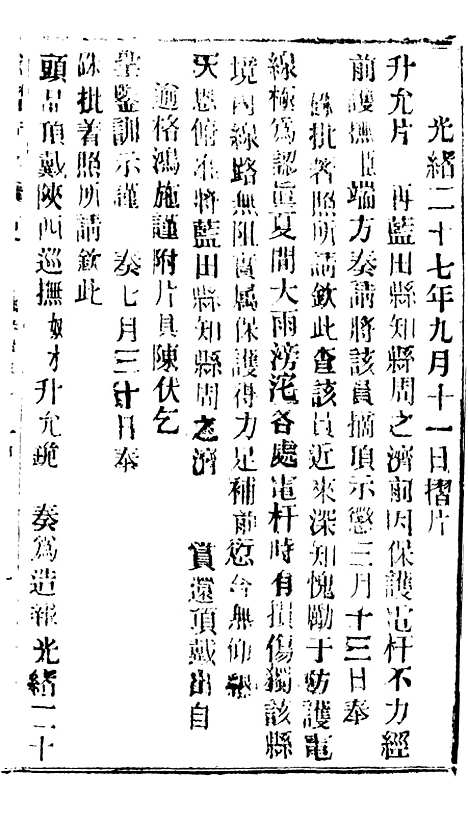 光緒二十七年九月十一日摺片
升允片 再藍田縣知縣周之濟前因保護電杆不力經
前護撫臣端方奏請將該員摘頂示懲三月十三日奉
硃批著照所請欽此查該員近來深知愧勵于防護電
線極為認眞夏間大雨滂沱各處電杆時有損傷獨該縣
境內線路無阻實屬保護得力足補前愆合無仰懇
天恩俯准將藍田縣知縣周之濟 賞還頂戴出自
逾格鴻施謹附片具陳伏乞
皇鑒訓示謹 奏七月三十日奉
硃批着照所請欽此
頭品頂戴陝西巡撫奴才升允跪 奏為造報光緒二十